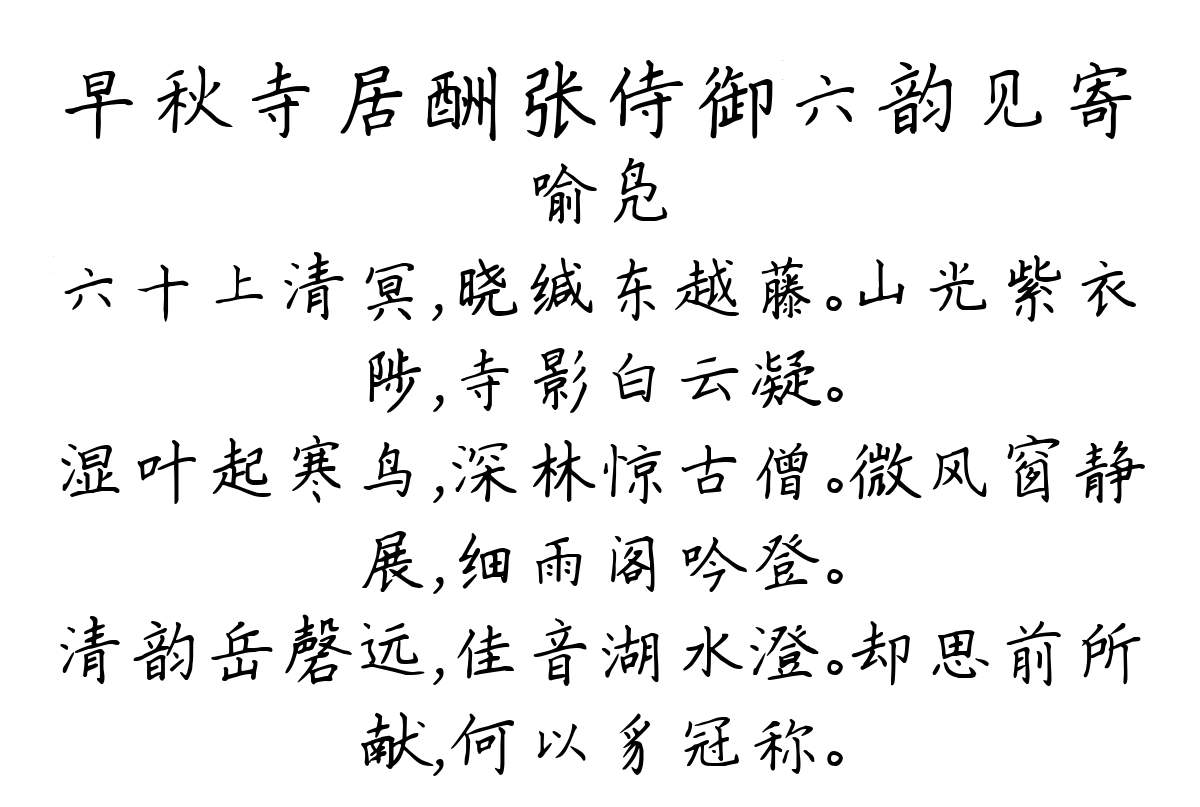 早秋寺居酬张侍御六韵见寄
喻凫
六十上清冥,晓缄东越藤。山光紫衣
陟,寺影白云凝。
湿叶起寒鸟,深林惊古僧。微风窗静
展,细雨阁吟登。
清韵岳磬远,佳音湖水澄。却思前所
献,何以豸冠称。